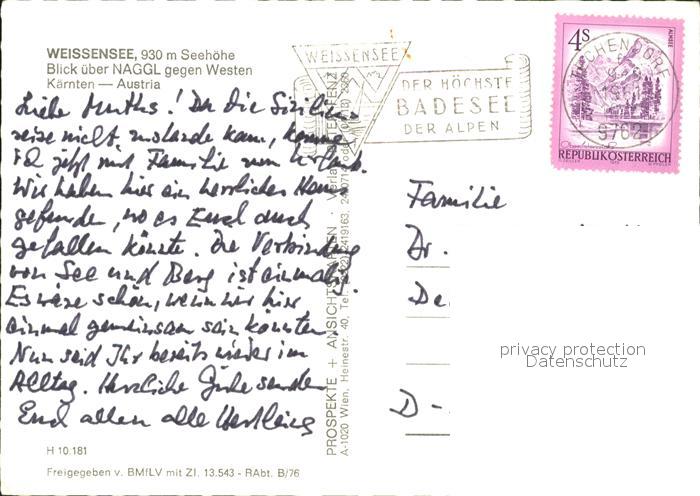 WEISSENSEE, 930 m Seehöhe
Blick über NAGGL gegen Westen
Kärnten — Austria
Liebe Muths! Da die Sizilien-
reise nicht zustande kam, komme
ich jetzt mit Familie zum Urlaub.
Wir haben hier ein herrliches Haus
gefunden, wo es Euch auch
gefallen könnte. Die Verbindung
von See und Berg ist einmalig.
Es wäre schön, wenn wir hier
einmal gemeinsam sein könnten.
Nun seid Ihr bereits wieder im
Alltag. Herzliche Grüße senden
Euch allen alle
H 10.181
Freigegeben v. BMfLV mit Zl. 13.543 - RAbt. B/76
PROSPEKTE + ANSICHTSKARTEN
A-1020 Wien, Heinestr. 40, Tel.
WEISSENSEE
DER HÖCHSTE
BADESEE
DER ALPEN
4S
ALMSEE
REPUBLIK ÖSTERREICH
TECHENDORF
9762
Familie
Dr.
De
D-
privacy protection
Datenschutz